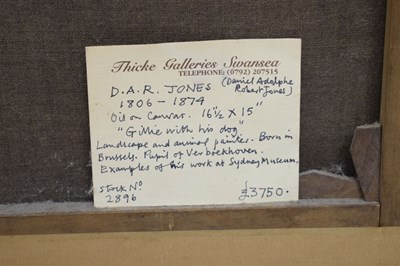 Thicke Galleries Swansea
TELEPHONE: (0792) 207515
D.A.R. JONES (Daniel Adolphe Robert Jones)
1806 - 1874
Oil on Canvas. 16½ X 15"
"Gillie with his dog"
Landscape and animal painter. Born in
Brussels. Pupil of Verboekhoven.
Examples of his work at Sydney Museum.
Stock No
2896
£3750.